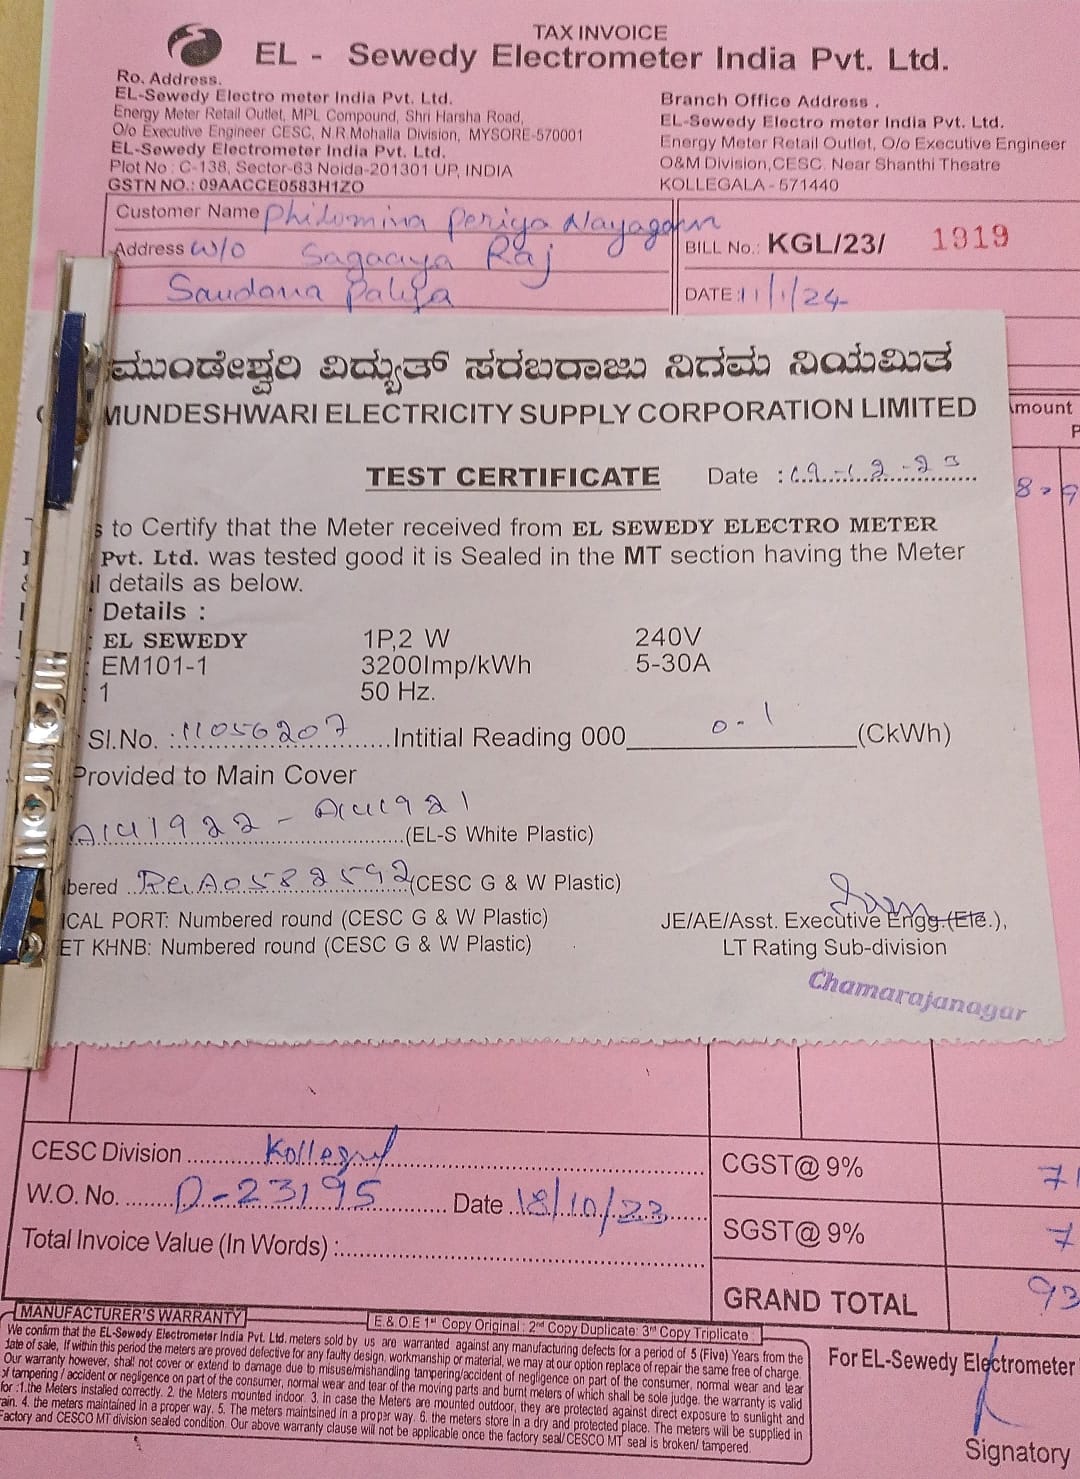 TAX INVOICE
EL - Sewedy Electrometer India Pvt. Ltd.
Ro. Address.
EL-Sewedy Electro meter India Pvt. Ltd.
Energy Meter Retail Outlet, MPL Compound, Shri Harsha Road,
O/o Executive Engineer CESC, N.R.Mohalla Division, MYSORE-570001
EL-Sewedy Electrometer India Pvt. Ltd.
Plot No : C-138, Sector-63 Noida-201301 UP, INDIA
GSTN NO.: 09AACCE0583H1ZO
Branch Office Address .
EL-Sewedy Electro meter India Pvt. Ltd.
Energy Meter Retail Outlet, O/o Executive Engineer
O&M Division,CESC. Near Shanthi Theatre
KOLLEGALA - 571440
Customer Name Philomina Periya Nayagam
Address W/o Sagaaya Raj
Saudana Palya
BILL No.: KGL/23/ 1919
DATE: 11/1/24
ಮುಂಡೇಶ್ವರಿ ವಿದ್ಯುತ್ ಸರಬರಾಜು ನಿಗಮ ನಿಯಮಿತ
MUNDESHWARI ELECTRICITY SUPPLY CORPORATION LIMITED
mount
P
TEST CERTIFICATE Date : 19-12-23
s to Certify that the Meter received from EL SEWEDY ELECTRO METER
Pvt. Ltd. was tested good it is Sealed in the MT section having the Meter
l details as below.
Details :
: EL SEWEDY 1P,2 W 240V
: EM101-1 3200Imp/kWh 5-30A
: 1 50 Hz.
Sl.No. : 11056207 Intitial Reading 000 0-1 (CkWh)
Provided to Main Cover
A141922 - A141921 (EL-S White Plastic)
bered (CESC G & W Plastic)
ICAL PORT: Numbered round (CESC G & W Plastic)
ET KHNB: Numbered round (CESC G & W Plastic)
JE/AE/Asst. Executive Engg.(Ele.),
LT Rating Sub-division
Chamarajanagar
CESC Division Kollegal
W.O. No. D-23195 Date 18/10/23
Total Invoice Value (In Words) :
CGST@ 9% 71
SGST@ 9% 7
GRAND TOTAL 93
MANUFACTURER'S WARRANTY
E.& O.E 1st Copy Original : 2nd Copy Duplicate: 3rd Copy Triplicate :
We confirm that the EL-Sewedy Electrometer India Pvt. Ltd. meters sold by us are warranted against any manufacturing defects for a period of 5 (Five) Years from the
date of sale, If within this period the meters are proved defective for any faulty design, workmanship or material, we may at our option replace of repair the same free of charge.
Our warranty however, shall not cover or extend to damage due to misuse/mishandling tampering/accident of negligence on part of the consumer, normal wear and tear
of tampering / accident or negligence on part of the consumer, normal wear and tear of the moving parts and burnt meters of which shall be sole judge. the warranty is valid
for :1.the Meters installed correctly. 2. the Meters mounted indoor. 3. in case the Meters are mounted outdoor, they are protected against direct exposure to sunlight and
rain. 4. the meters maintained in a proper way. 5. The meters maintsined in a proper way. 6. the meters store in a dry and protected place. The meters will be supplied in
Factory and CESCO MT division sealed condition. Our above warranty clause will not be applicable once the factory seal/ CESCO MT seal is broken/ tampered.
For EL-Sewedy Electrometer
Signatory